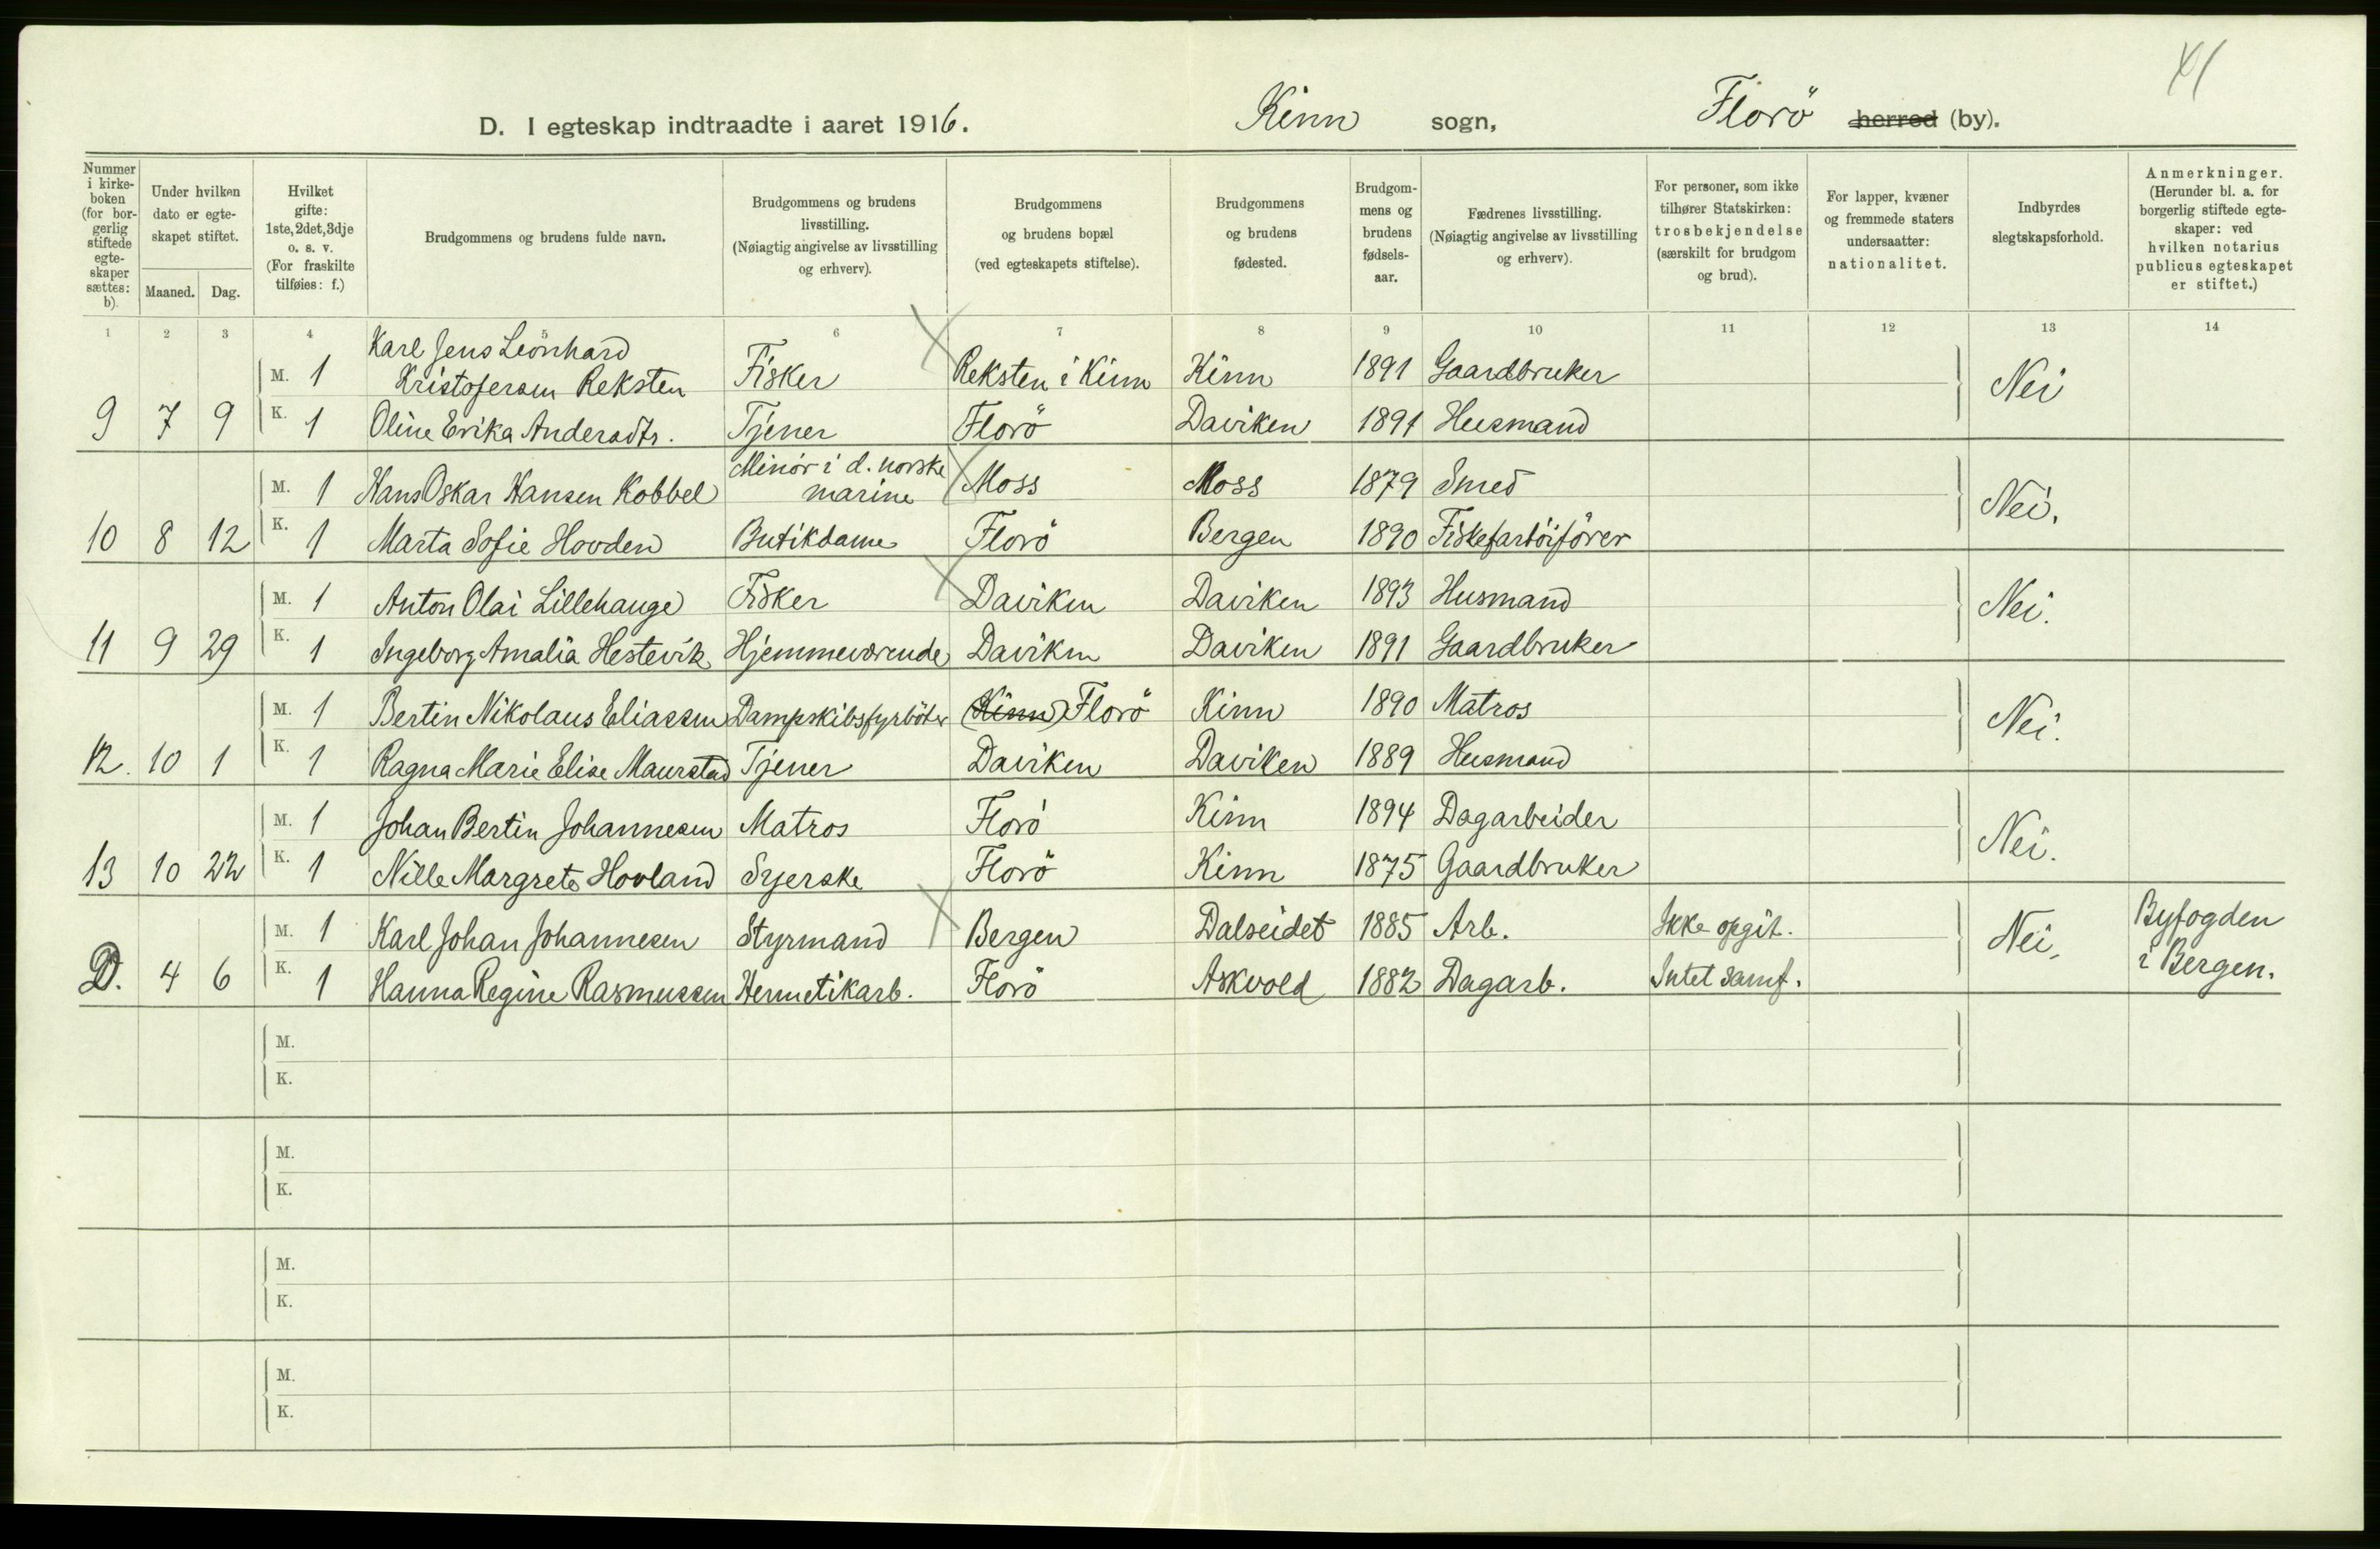 41
D. I egteskap indtraadte i aaret 1916. Kinn sogn, Florö herred (by).
Nummer i kirke-boken (for bor-gerlig stiftede egte-skaper sættes: b).
Under hvilken dato er egte-skapet stiftet.
Maaned. Dag.
Hvilket gifte: 1ste, 2det, 3dje o. s. v. (For fraskilte tilføies: f.)
Brudgommens og brudens fulde navn.
Brudgommens og brudens livsstilling. (Nøiagtig angivelse av livsstilling og erhverv).
Brudgommens og brudens bopæl (ved egteskapets stiftelse).
Brudgommens og brudens fødested.
Brudgom-mens og brudens fødsels-aar.
Fædrenes livsstilling. (Nøiagtig angivelse av livsstilling og erhverv).
For personer, som ikke tilhører Statskirken: trosbekjendelse (særskilt for brudgom og brud).
For lapper, kvæner og fremmede staters undersaatter: nationalitet.
Indbyrdes slegtskapsforhold.
Anmerkninger. (Herunder bl. a. for borgerlig stiftede egte-skaper: ved hvilken notarius publicus egteskapet er stiftet.)
1 2 3 4 5 6 7 8 9 10 11 12 13 14
Karl Jens Leonhard
M. 1 Kristofersen Reksten Fisker Reksten i Kinn Kinn 1891 Gaardbruker Nei
9 7 9 K. 1 Oline Erika Andersdtr. Tjener Florö Daviken 1891 Husmand
Minör i d. norske
M. 1 Hans Oskar Hansen Kobbel marine Moss Moss 1879 Smed Nei.
10 8 12 K. 1 Marta Sofie Hovden Butikdame Florö Bergen 1890 Fiskefartöiförer
M. 1 Anton Olai Lillehauge Fisker Daviken Daviken 1893 Husmand Nei.
11 9 29 K. 1 Ingeborg Amalia Hestevik Hjemmeværende Daviken Daviken 1891 Gaardbruker
M. 1 Bertin Nikolaus Eliassen Dampskibsfyrböter (Kinn) Florö Kinn 1890 Matros Nei.
12. 10 1 K. 1 Ragna Marie Elise Maurstad Tjener Daviken Daviken 1889 Husmand
M. 1 Johan Bertin Johannesen Matros Florö Kinn 1894 Dagarbeider Nei.
13 10 22 K. 1 Nille Margrete Hovland Syerske Florö Kinn 1875 Gaardbruker
M. 1 Karl Johan Johannesen Styrmand Bergen Dalseidet 1885 Arb. Ikke opgit. Nei. Byfogden
D. 4 6 K. 1 Hanna Regine Rasmussen Hermetikarb. Florö Askvold 1882 Dagarb. Intet samf. i Bergen.
M.
K.
M.
K.
M.
K.
M.
K.